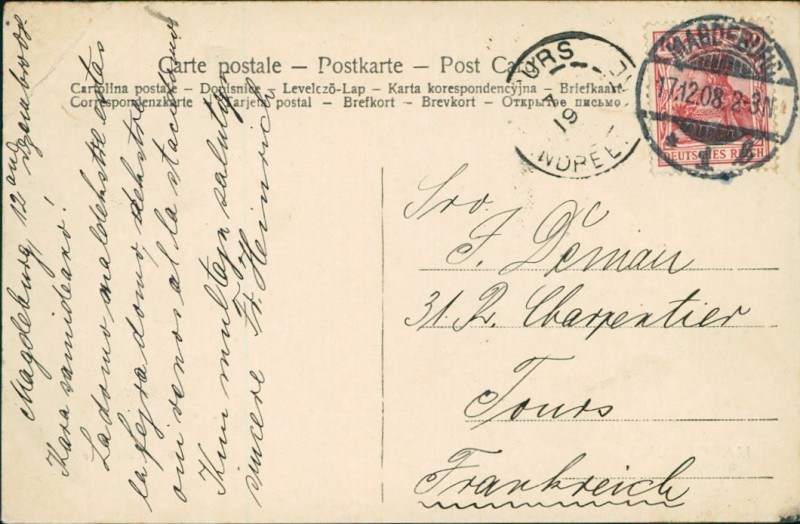 Carte postale – Postkarte – Post Car
Cartolina postale – Dopisnice – Levelező-Lap – Karta korespondencyjna – Briefkaart
Correspondenzkarte – Tarjeta postal – Brefkort – Brevkort – Открытое письмо
URS
19
NDREE
MAGDEBURG
17.12.08. 2-3N
* 1 h
DEUTSCHES REICH
Magdeburg, 12
Kara samideano!
La domo maldekstre estas
la fejradomo, dekstre
oni venas al la stacidomo
Kun multaj salutoj
sincere Fr. Heinrich
Sro.
J. Déman
31. R. Charpentier
Tours
Frankreich